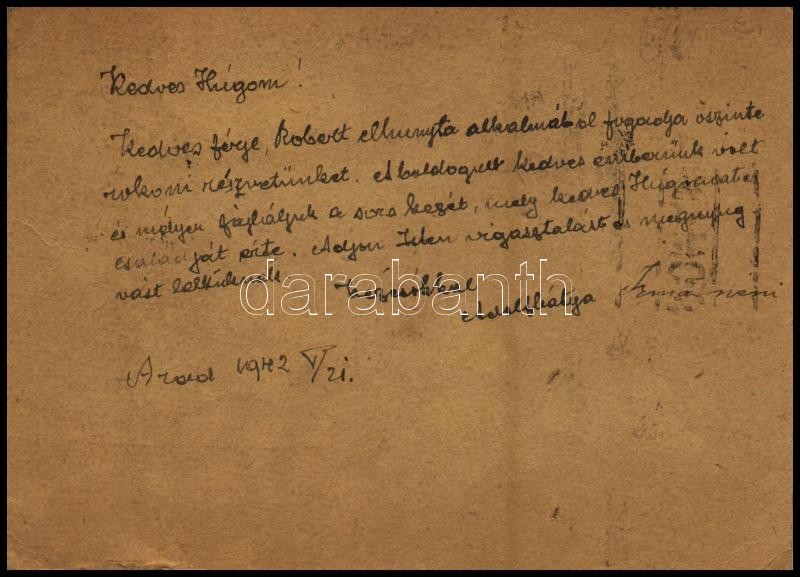 Kedves Húgom!
Kedves férje, Robert elhunyta alkalmából fogadja őszinte
rokoni részvétünket. A boldogult kedves emberünk volt
és mélyen fájlaljuk a sors kezét, mely kedves Húgomat és
családját érte. Adjon Isten vigasztalást és megnyug-
vást lelküknek.
Kézcsókkal
darabanth
Irma néni
Arad 1942 V/21.